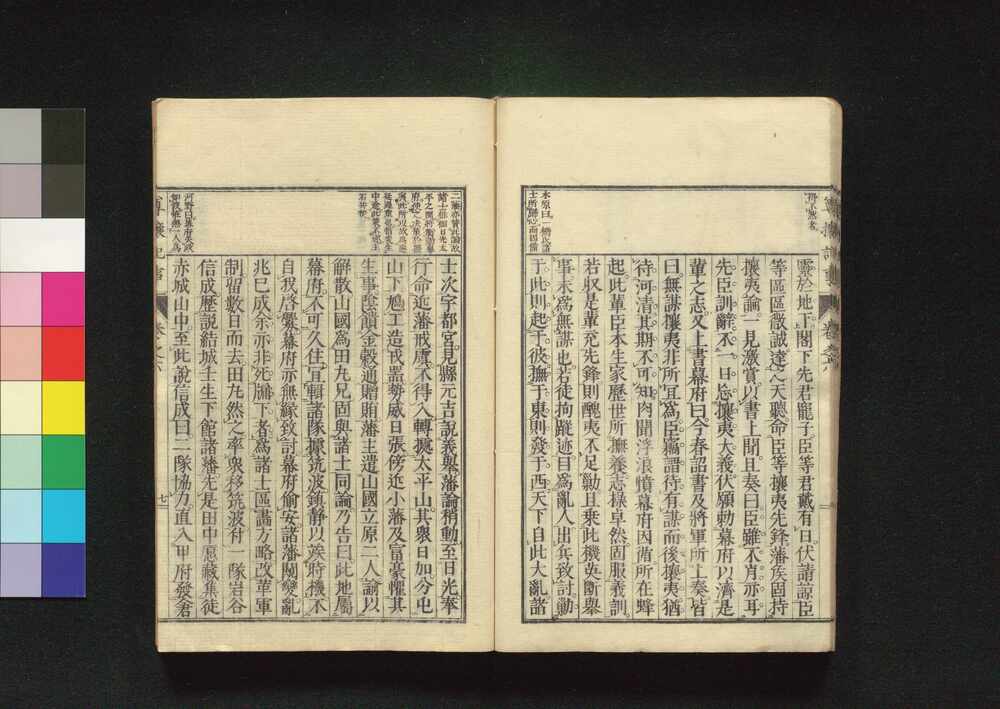 靈於地下閣下先君寵子臣等君戴有日伏請諒臣
等區區微誠達之天聽命臣等攘夷先鋒藩疾固持
攘夷論一見激賞以書上聞且奏曰臣雖不肖亦耳
先臣訓辭不一日忘攘夷大義伏願勅幕府以濟是
輩之志又上書幕府曰今春詔書及將軍所上奏皆
曰無謀攘夷非所宜為臣竊謂待有謀而後攘夷猶
待河清其期不可知肉聞浮浪憤幕府因循所在蜂
起此輩臣本生家歷世所撫養志操卓然固服義訓
若収是輩充先鋒則醜夷不足勦且乗此機英斷舉
事未為無謀也若徒拘蹤迹目為亂人出兵致討動
于此則起于彼撫于東則發于西天下自此大亂諸
木原曰一橋氏諸
士所歸心而因循
尊攘紀事
卷之六
士次字都宮見縣元吉說義舉藩論稍動至日光奉
行命近藩戒虞不得入轉據太平山其衆日加分屯
山下鳩工造戎器勢威日張傍近小藩及富豪懼其
生事陰饋金穀通贈賄藩主遣山國立原二人諭以
解散山國為田丸兄固與諸士同論乃告曰此地屬
幕府不可久住宜輯諸隊據筑波鎮靜以竢時機不
自我啓釁幕府亦無緣致討幕府偷安諸藩鬩變亂
兆已成余亦非死牖下者為諸士區畫方略改革軍
制留數日而去田丸然之率衆移筑波付一隊岩谷
信成歷說結城壬生下館諸藩先是田中愿藏集徒
赤城山中至此說信成曰二隊協力直入甲府發倉
尊攘紀事
卷之六
七